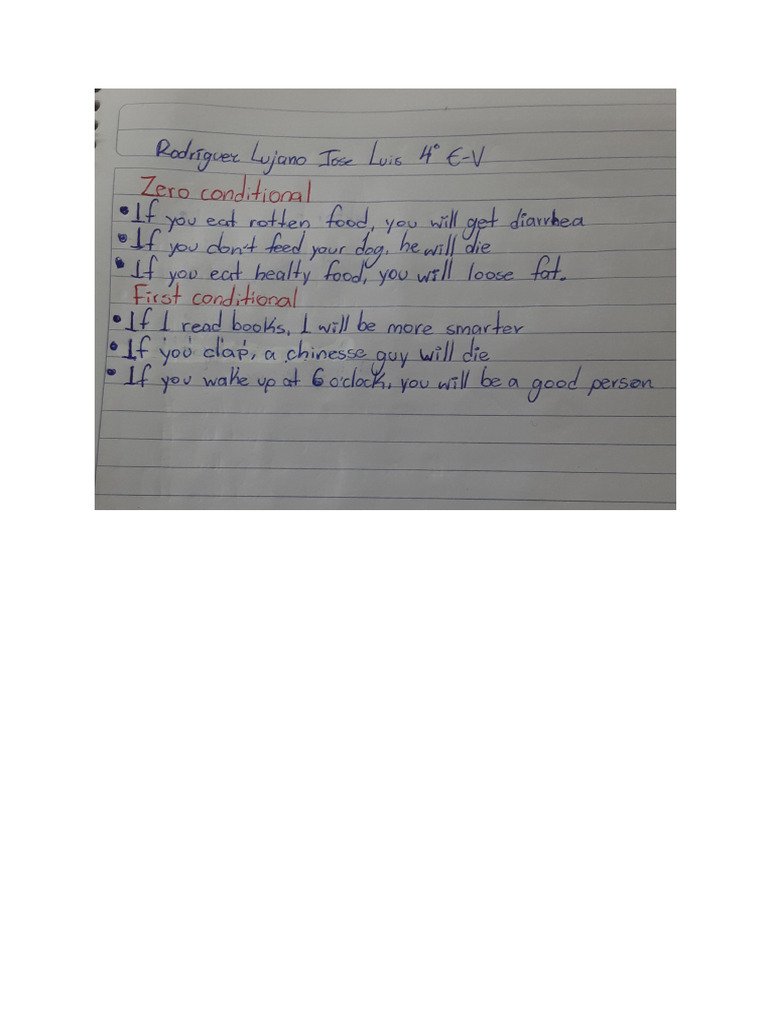 Rodríguez Lujano Jose Luis 4° E-V
Zero conditional
• If you eat rotten food, you will get diarrhea
• If you don't feed your dog, he will die
• If you eat healty food, you will loose fat.
First conditional
• If I read books, I will be more smarter
• If you clap, a chinesse guy will die
• If you wake up at 6 o'clock, you will be a good person